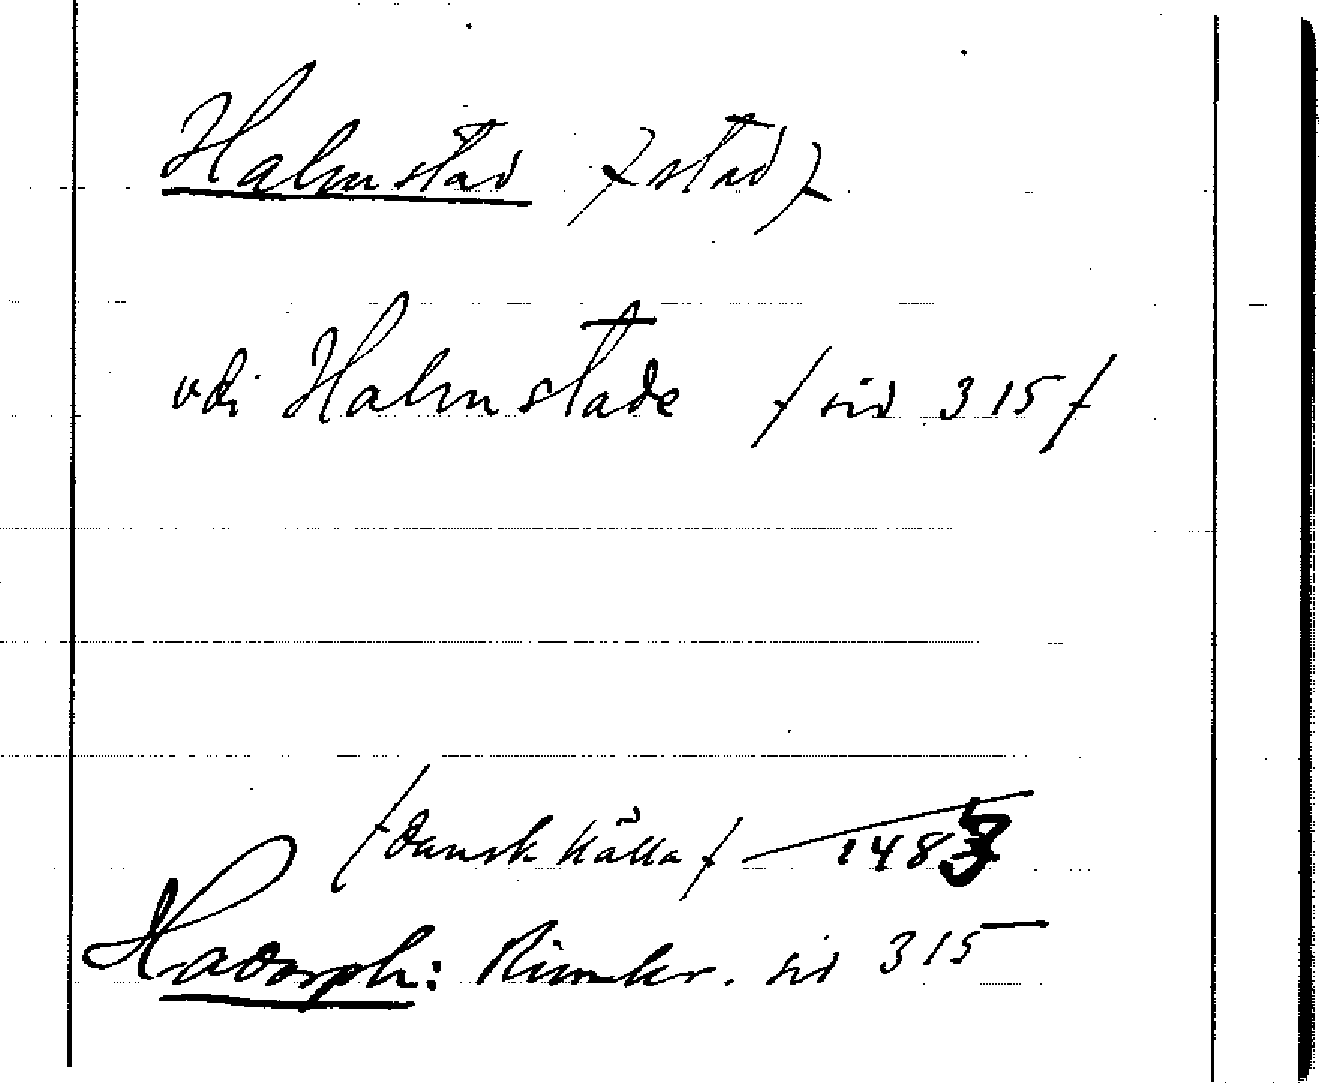 Halmstad (stad)
vdi Halmstade /sid 315/
/dansk källa/ 1483
Hadorph: Rimkr. sid 315